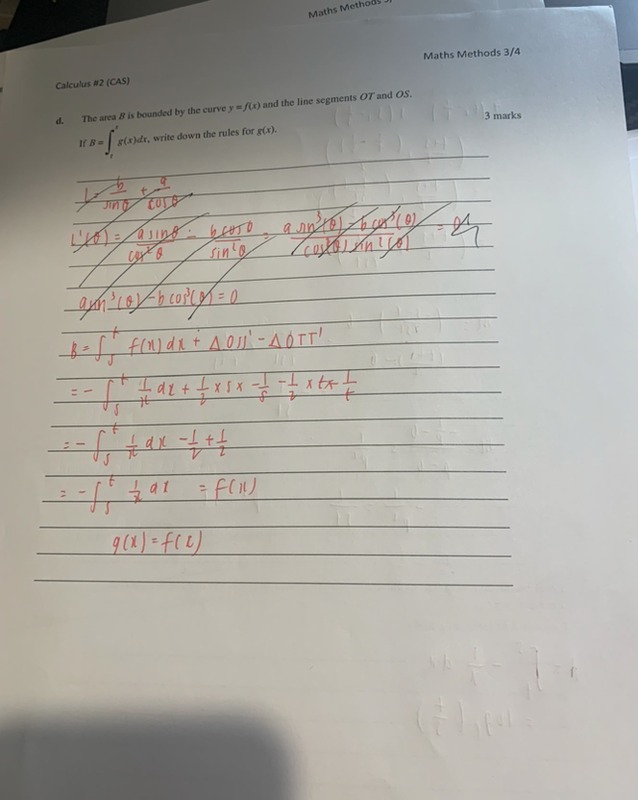 Maths Methods 3/
Maths Methods 3/4
Calculus #2 (CAS)
d. The area B is bounded by the curve y = f(x) and the line segments OT and OS.
If B = ∫ₛᵗ g(x)dx, write down the rules for g(x).
3 marks
L = b/sinθ + a/cosθ
L'(θ) = a sinθ/cos²θ - b cosθ/sin²θ = a sin³(θ) - b cos³(θ)/cos²(θ) sin²(θ) = 0
a sin³(θ) - b cos³(θ) = 0
B = ∫ₛᵗ f(x) dx + Δ OSS' - Δ OTT'
= - ∫ₛᵗ 1/x dx + 1/2 × s × - 1/s - 1/2 × t × 1/t
= - ∫ₛᵗ 1/x dx - 1/2 + 1/2
= - ∫ₛᵗ 1/x dx = f(x)
g(x) = f(x)